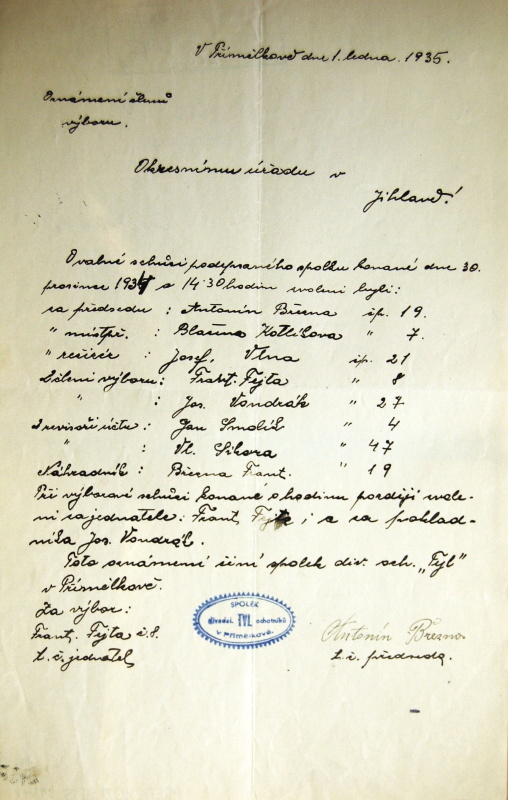 V Přímělkově dne 1. ledna. 1935.
Oznámení členů
výboru.
Okresnímu úřadu v
Jihlavě!
O valné schůzi podepsaného spolku konané dne 30.
prosince 1934 o 14.30 hodin zvoleni byli:
za předsedu : Antonín Března čp. 19.
" místpř. : Blažena Kotlíkova " 7.
" režisér : Josef, Vlna čp. 21
Členi výboru: Frant. Fejta " 8
" : Jos. Vondrák " 27
Revisoři účtu: Jan Smolík " 4
" : Vl. Sikora " 47
Náhradník : Března Frant. " 19
Při výborové schůzi konané o hodinu později zvole-
ni za jednatele: Frant, Fejta ; a za poklad-
níka Jos. Vondrák.
Toto oznámení činí spolek div. och. „Tyl"
v Přímělkově.
Za výbor:
Frant. Fejta č. 8.
t. č. jednatel
SPOLEK
divadel. TYL ochotníků
v Přímělkově.
Antonín Března
t. č. předseda.